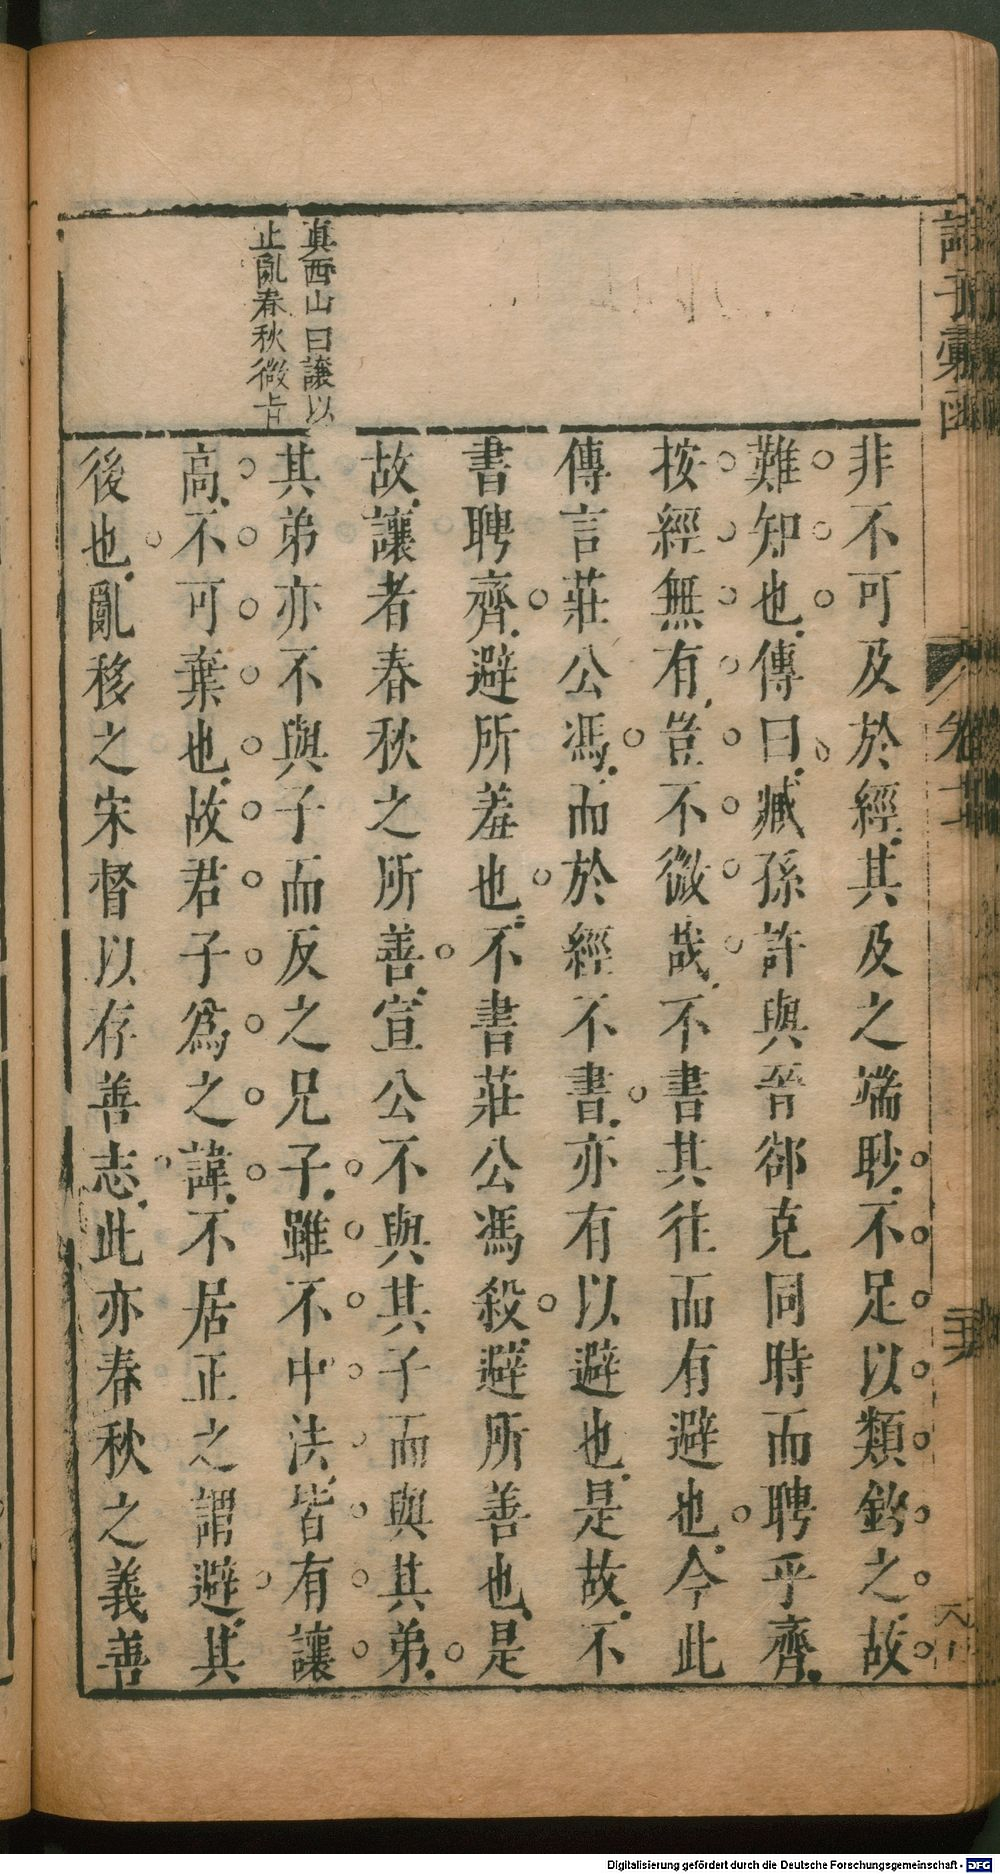 真西山曰讓以
止亂春秋微旨
非不可及於經其及之端眇不足以類鉤之故
難知也傳曰臧孫許與晉郤克同時而聘乎齊
按經無有豈不微哉不書其往而有避也今此
傳言莊公馮而於經不書亦有以避也是故不
書聘齊避所羞也不書莊公馮殺避所善也是
故讓者春秋之所善宣公不與其子而與其弟
其弟亦不與子而反之兄子雖不中法皆有讓
高不可葉也故君子爲之諱不居正之謂避其
後也亂移之宋督以存善志此亦春秋之義善
諸子彙函
Digitalisierung gefördert durch die Deutsche Forschungsgemeinschaft - DFG